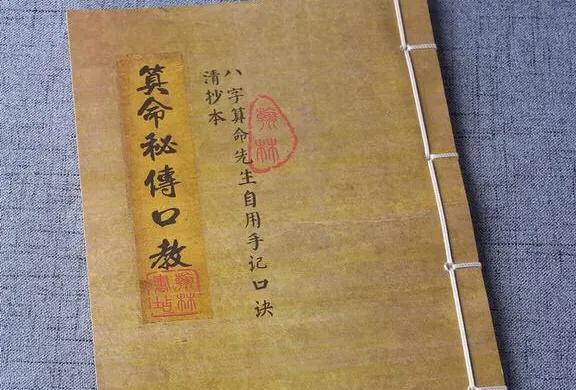 八字算命先生自用手记口诀
清抄本
翰林
算命秘傳口教
翰林